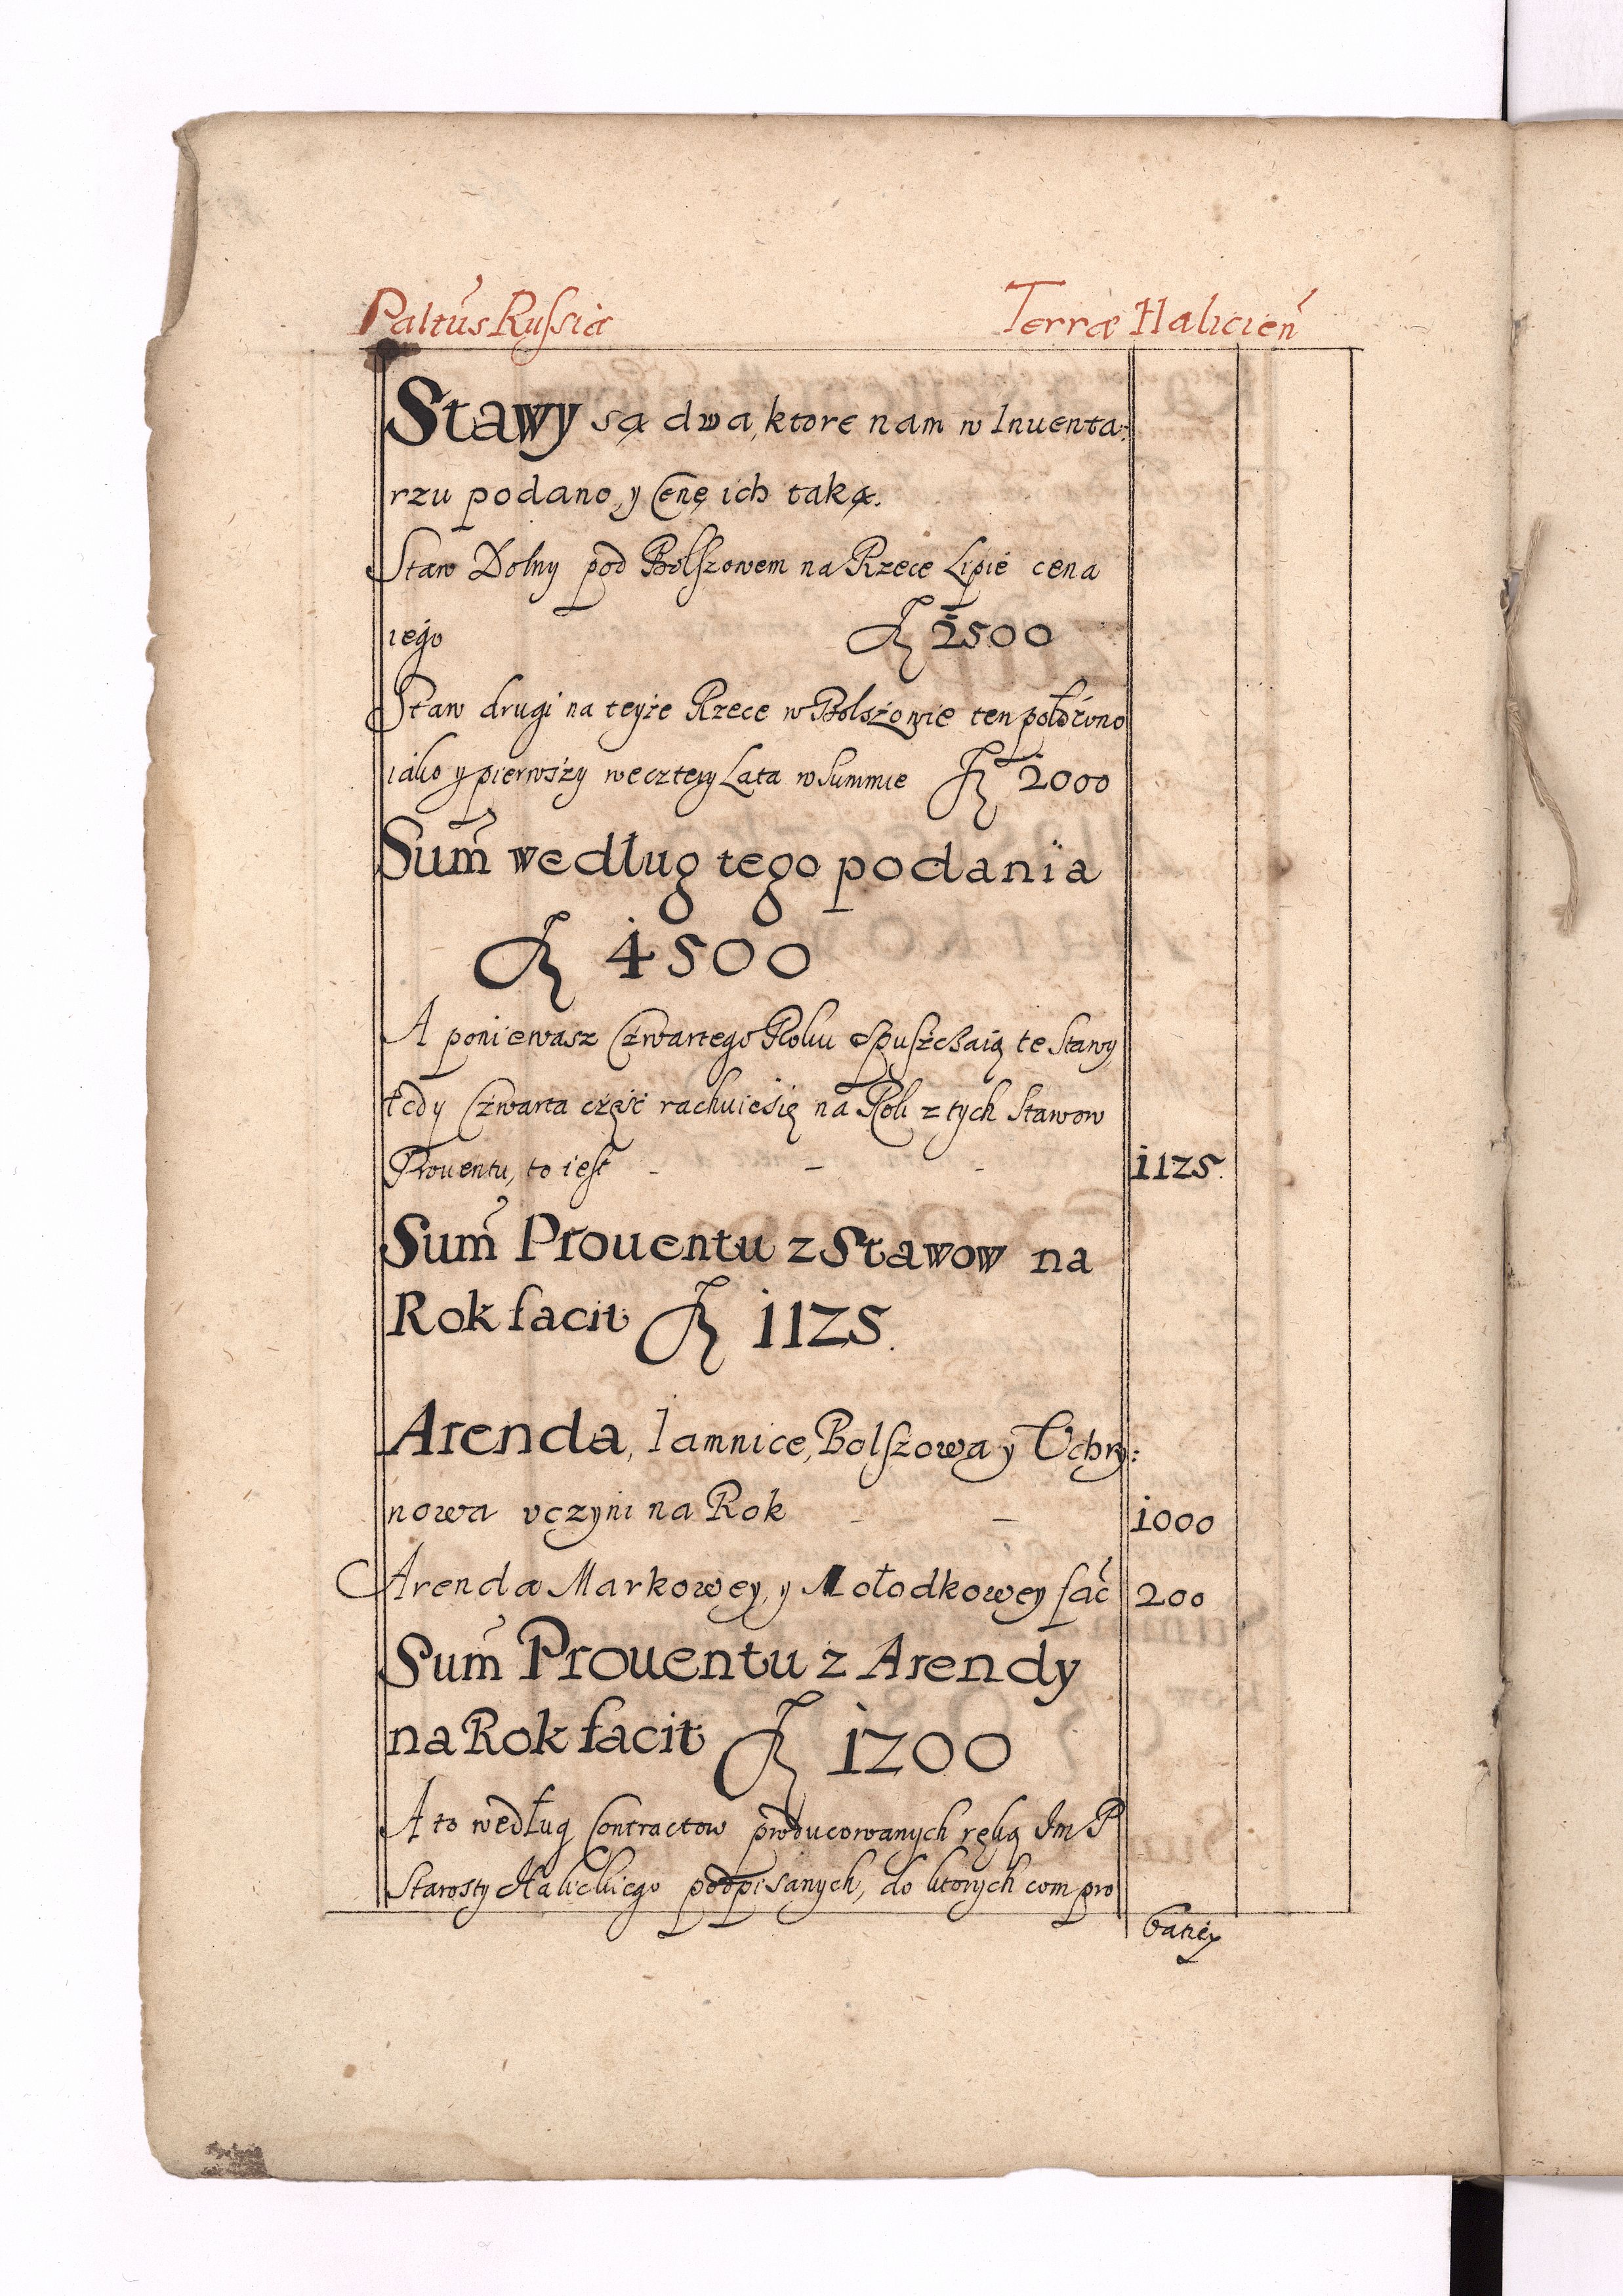 Paltūs Russiæ Terræ Halicień
Stawy są dwa, ktore nam w Inuenta:
rzu podano, y Cenę ich taką.
Staw Dolny pod Bolszowem na Rzece Lipie cena
iego fl 2500
Staw drugi na teyże Rzece w Bolszowie ten położono
iako y pierwszy we cztery Lata w Summie fl 2000
Sum̃ według tego podania
fl 4500
A poniewasz Czwartego Roku spuszczaią te Stawy
tedy Czwarta część rachuie się na Rok z tych Stawow
Prouentu, to iest - - - 1125.
Sum̃ Prouentu z Stawow na
Rok facit fl 1125.
Arenda, Iamnice, Bolszowa y Uchry:
nowa uczyni na Rok - - 1000
Arenda Markowey, y Mołodkowey fac̃ 200
Sum̃ Prouentu z Arendy
na Rok facit fl 1200
A to według Contractow producowanych ręką Im P
Starosty Halickiego podpisanych, do ktorych compro